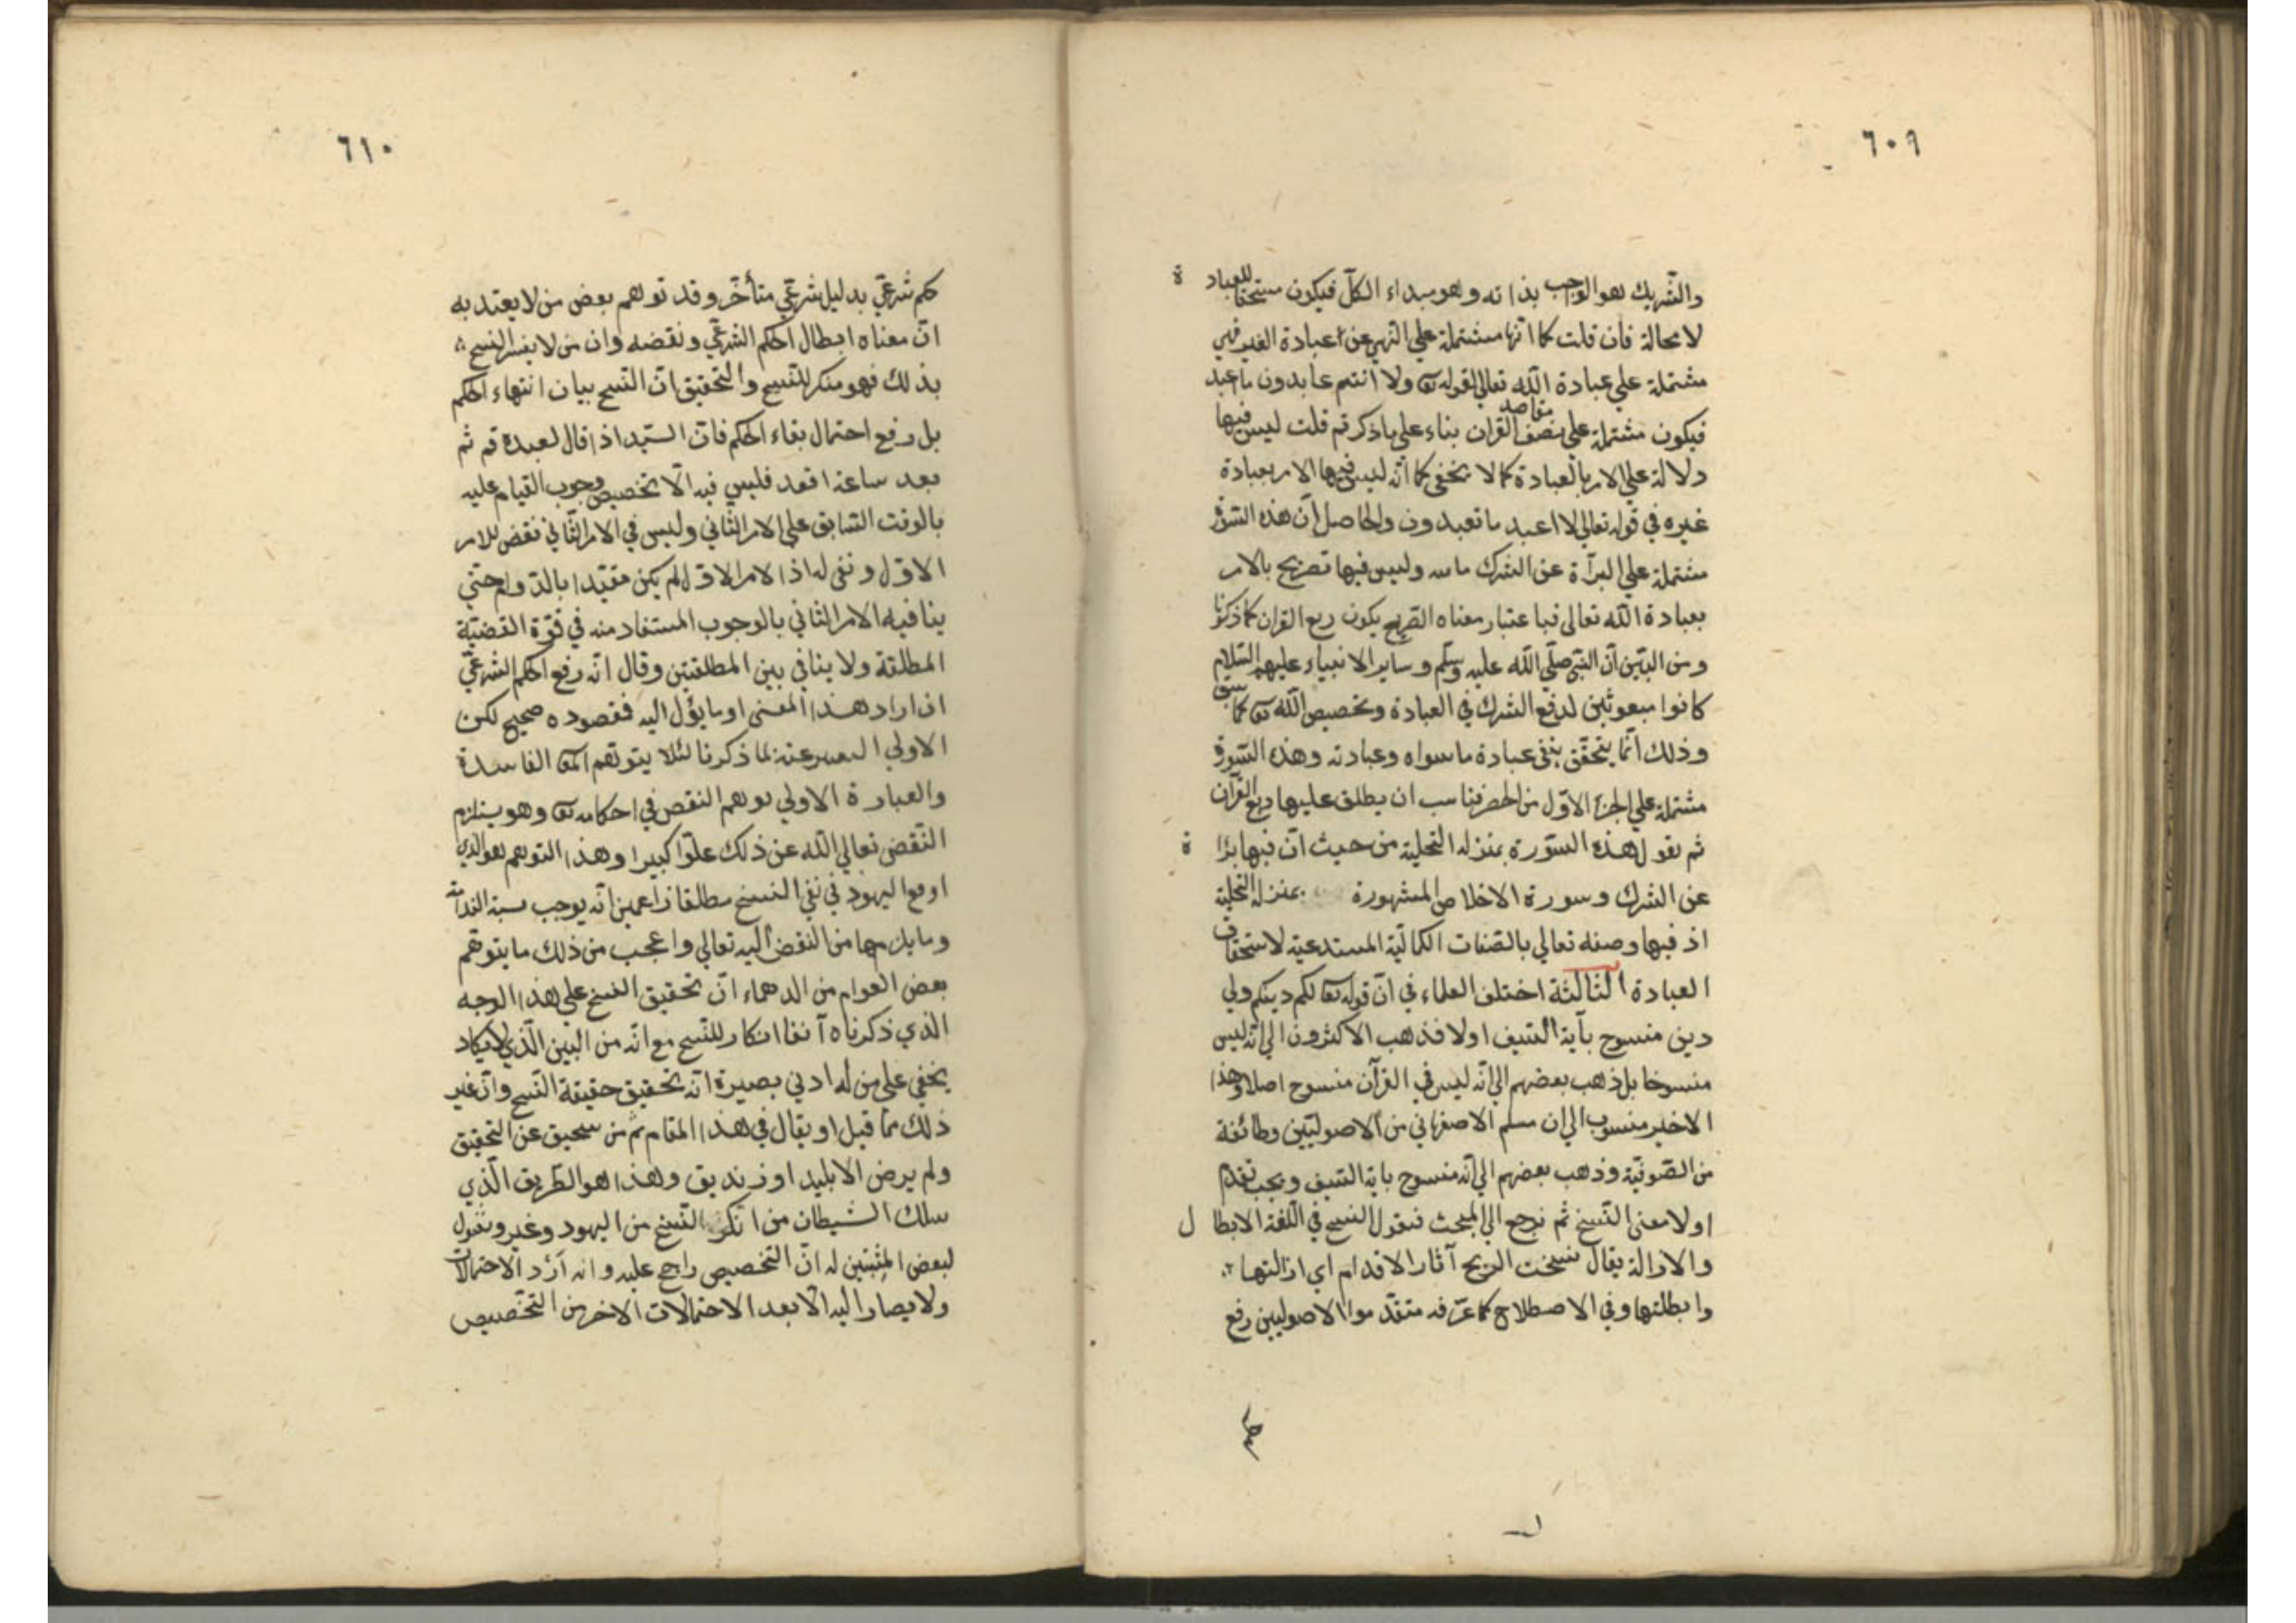 ٦٠٩
والشريك هو الواجب بذاته وهو مبداء الكلّ فيكون مستحقا للعبادة
لا محالة فان قلت كما انّها مشتملة علي النهي عن عبادة الغير فهي
مشتملة علي عبادة الله تعالي لقوله تعـ ولا انتم عابدون ما اعبد
فيكون مشتملة علي نصف مقاصد القران بناء علي ما ذكرتم قلت ليس فيها
دلالة علي الامر بالعبادة كما لا يخفي كما انّه ليس فيها الامر بعبادة
غيره في قوله تعالي لا اعبد ما تعبدون والحاصل انّ هذه السّورة
مشتملة علي البرآة عن الشرك مامه وليس فيها تصريح بالامر
بعبادة الله تعالي فباعتبار معناه الصّريح يكون ربع القران كما ذكرنا
ومن البيّن انّ النبيّ صلّي الله عليه وسلّم وساير الانبياء عليهم السّلام
كانوا مبعوثين لدفع الشرك في العبادة وتخصيص الله تعـ كما سبق
وذلك انّما يتحقّق بنفي عبادة ما سواه وعبادته وهذه السّورة
مشتملة علي الجزء الاوّل من الحصر فناسب ان يطلق عليها ربع القرآن
ثم نقول هذه السّورة بمنزله التحلية من حيث انّ فيها برآة
عن الشرك وسورة الاخلاص المشهورة بمنزله التحلية
اذ فيها وصفه تعالي بالصّفات الكماليّة المستدعية لاستحقاق
العبادة الثالثة اختلف العلماء في انّ قوله تعـ لكم دينكم ولي
دين منسوخ بآية السّيف اولا فذهب الاكثرون الي انّه ليس
منسوخا بل ذهب بعضهم الي انّه ليس في القرآن منسوخ اصلا وهذا
الاخير منسوب الي ان مسلم الاصفهاني من الاصوليّين وطائفة
من الصّوفيّة وذهب بعضهم الي انّه منسوخ باية السّيف ويجب تقدّم
اولا معنى النّسخ ثم نرجع الي المبحث فنقول النسخ في اللّغة الابطال
والازالة يقال نسخت الريح آثار الاقدام اي ازالتها
وابطلتها وفي الاصطلاح كما عرّفه متقدّموا الاصوليين رفع
حكم
٦١٠
حكم شرعيّ بدليل شرعيّ متأخّر وقد توهم بعض من لا يعتد به
انّ معناه ابطال الحكم الشرعيّ ونقضه وان من لا يفسر النسخ
بذلك فهو منكر للنسخ والتحقيق انّ النسخ بيان انتهاء الحكم
بل رفع احتمال بقاء الحكم فانّ السيّد اذا قال لعبده قم ثم
بعد ساعة اقعد فليس فيه الّا تخصيص وجوب القيام عليه
بالوقت السّابق علي الامر الثّاني وليس في الامر الثّاني نقض للامر
الاوّل ونفي له اذ الامر الاوّل لم يكن مقيّدا بالدّوام حتي
ينافيه الامر الثّاني بالوجوب المستفاد منه في قوّة القضيّة
المطلقة ولا ينافي بين المطلقتين وقال انّه رفع الحكم الشرعيّ
ان اراد هذا المعنى او ما يؤل اليه فقصوده صحيح لكن
الاولي التعبير عنه بما ذكرنا لئلا يتوهّم المعـ الفاسدة
والعبارة الاولي توهم النقص في احكامه تعـ وهو يستلزم
النّقض تعالي الله عن ذلك علوّا كبيرا وهذا التوهم هو الذي
اوقع اليهود في نفي النسخ مطلقا زاعمين انّه يوجب سبة الندامة
وما يلزمها من النقض اليه تعالي واعجب من ذلك ما يتوهّم
بعض العوام من الدهماء انّ تحقيق النسخ علي هذا الوجه
الذي ذكرناه آنفا انكار للنّسخ مع انّه من البين الّذي لا يكاد
يخفي علي من له ادني بصيرة انّه تحقيق حقيقة النّسخ وانّ غير
ذلك ممّا قيل او يقال في هذا المقام ثم من سحيق عن التحقيق
ولم يرض الا بليد او زنديق وهذا هو الطّريق الّذي
سلك الشيطان من انكر النّسخ من اليهود وغير ونقول
لبعض المثبتين له انّ التخصيص راجح عليه وانه أرد الاحتمالات
ولا يصار اليه الّا بعد الاحتمالات الاخر من التّخصيص